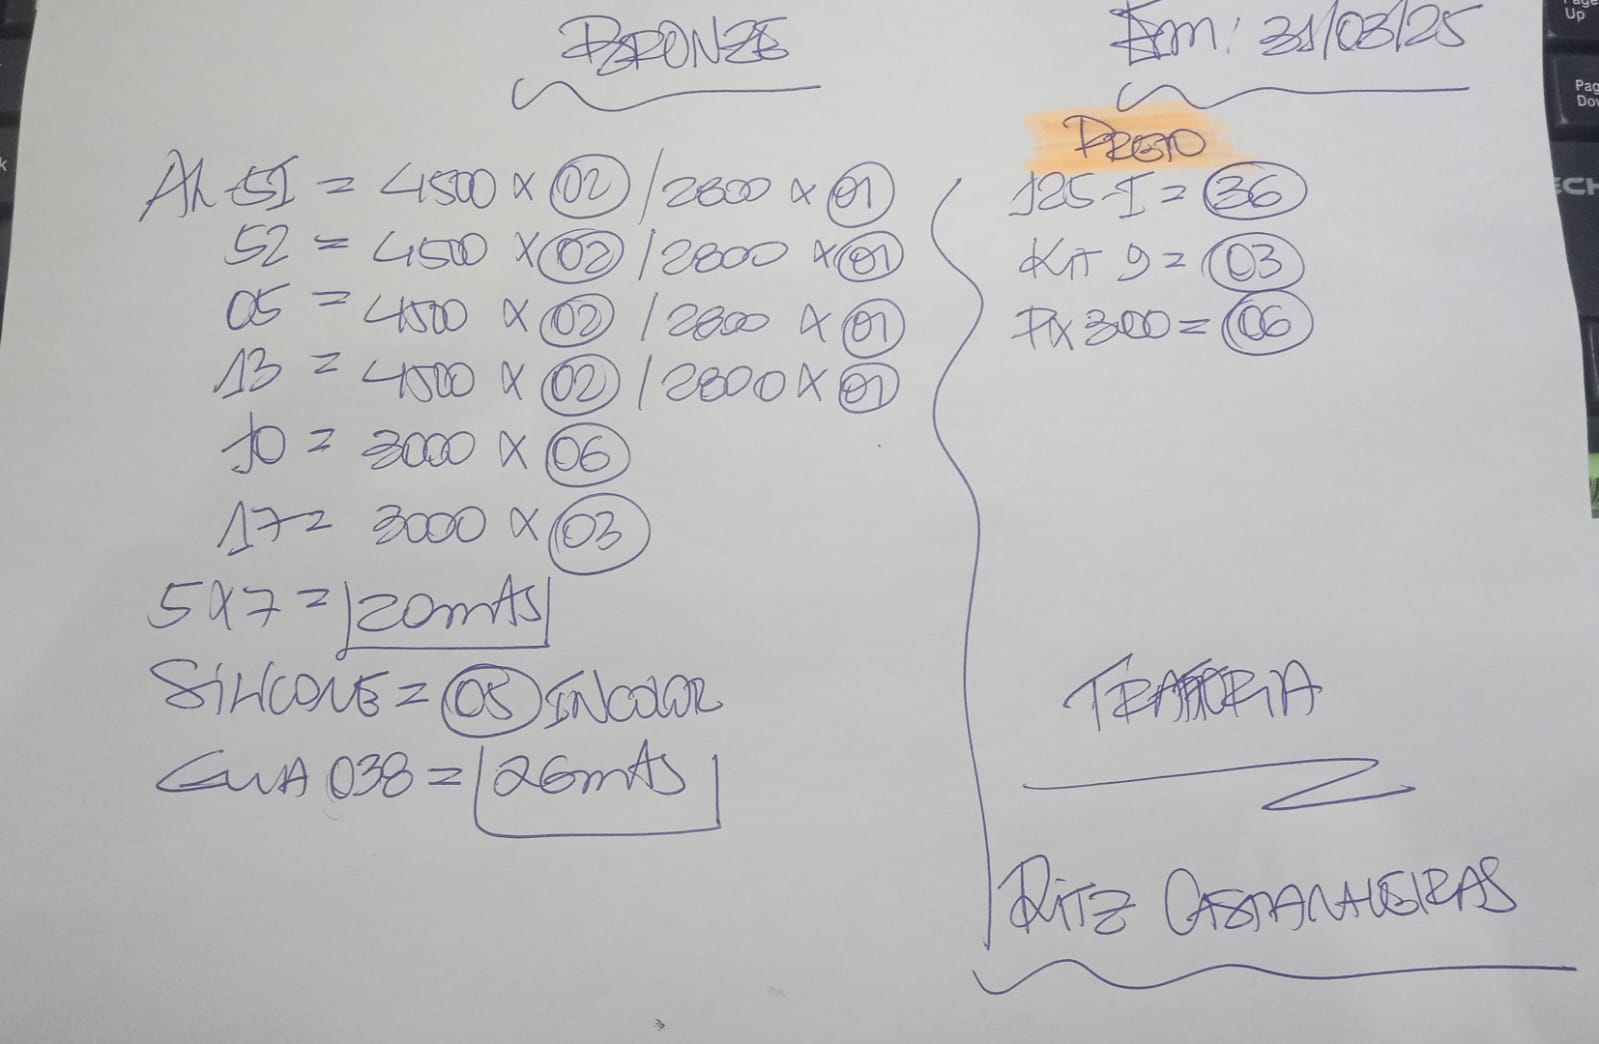 BRONZE
Em: 31/03/25
AL 51 = 4500 x 02 / 2800 x 01
52 = 4500 x 02 / 2800 x 01
05 = 4500 x 02 / 2800 x 01
13 = 4500 x 02 / 2800 x 01
10 = 3000 x 06
17 = 3000 x 03
5x7 = 20mts
SILICONE = 05 INCOLOR
GUIA 038 = 26mts
PRETO
125-I = 36
KIT 9 = 03
PX 300 = 06
TRATORIA
RITZ CASTANHEIRAS
Page
Up
Page
Dow
ECH
k